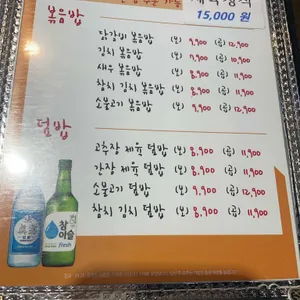 15,000 원
볶음밥
닭갈비 볶음밥 (보) 9,900 (곱) 12,900
김치 볶음밥 (보) 7,900 (곱) 10,900
새우 볶음밥 (보) 8,900 (곱) 11,900
참치 김치 볶음밥 (보) 8,900 (곱) 11,900
소불고기 볶음밥 (보) 9,900 (곱) 12,900
덮밥
고추장 제육 덮밥 (보) 8,900 (곱) 11,900
간장 제육 덮밥 (보) 8,900 (곱) 11,900
소불고기 덮밥 (보) 9,900 (곱) 12,900
참치 김치 덮밥 (보) 8,900 (곱) 11,900
참이슬
fresh